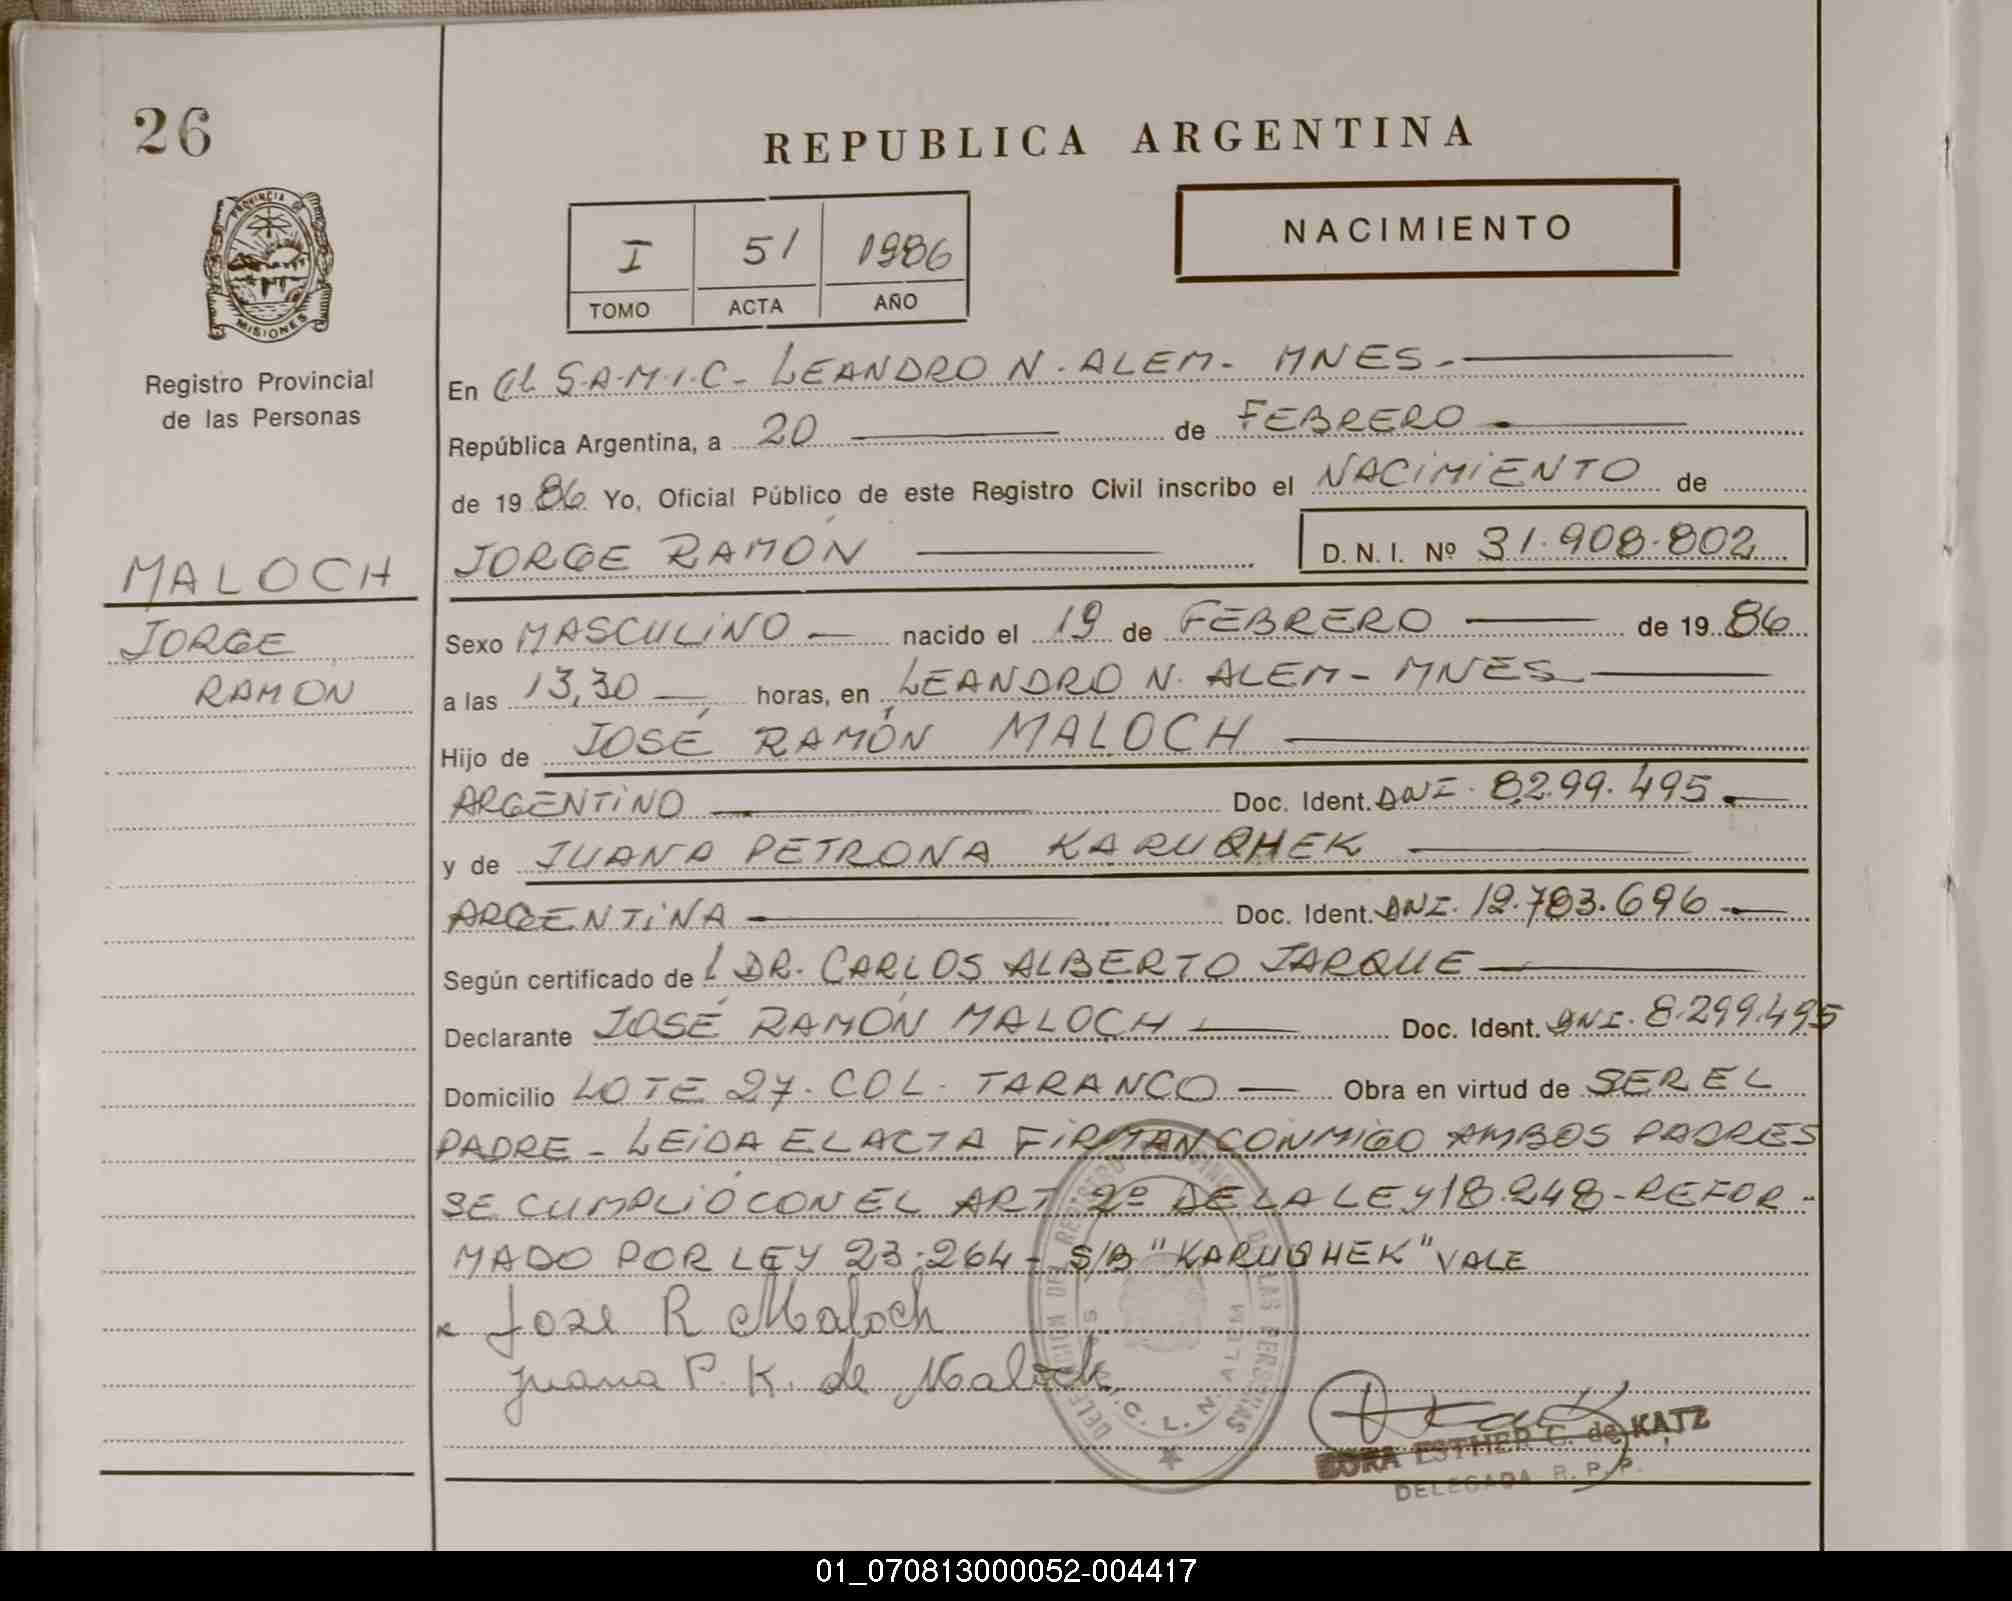 26
REPUBLICA ARGENTINA
NACIMIENTO
I 51 1986
TOMO ACTA AÑO
PROVINCIA DE
MISIONES
Registro Provincial
de las Personas
En el S.A.M.I.C. LEANDRO N. ALEM - MNES -
República Argentina, a 20 de FEBRERO
de 1986 Yo, Oficial Público de este Registro Civil inscribo el NACIMIENTO de
JORGE RAMÓN D. N. I. Nº 31.908.802
MALOCH
JORGE
RAMON
Sexo MASCULINO nacido el 19 de FEBRERO de 1986
a las 13,30 horas, en LEANDRO N. ALEM - MNES
Hijo de JOSÉ RAMÓN MALOCH
ARGENTINO Doc. Ident. DNI. 8.299.495
y de JUANA PETRONA KARUQHEK
ARGENTINA Doc. Ident. DNI. 12.783.696
Según certificado de l DR. CARLOS ALBERTO JARQUE
Declarante JOSÉ RAMÓN MALOCH Doc. Ident. DNI. 8.299.495
Domicilio LOTE 27. COL. TARANCO Obra en virtud de SER EL
PADRE - LEIDA EL ACTA FIRMAN CONMIGO AMBOS PADRES
SE CUMPLIÓ CON EL ART 2º DE LA LEY 18.248 - REFOR-
MADO POR LEY 23.264 - S/B "KARUQHEK" VALE
Jose R Maloch
Juana P. K. de Maloch
DORA ESTHER C. de KATZ
DELEGADA R. P. P.
01_070813000052-004417